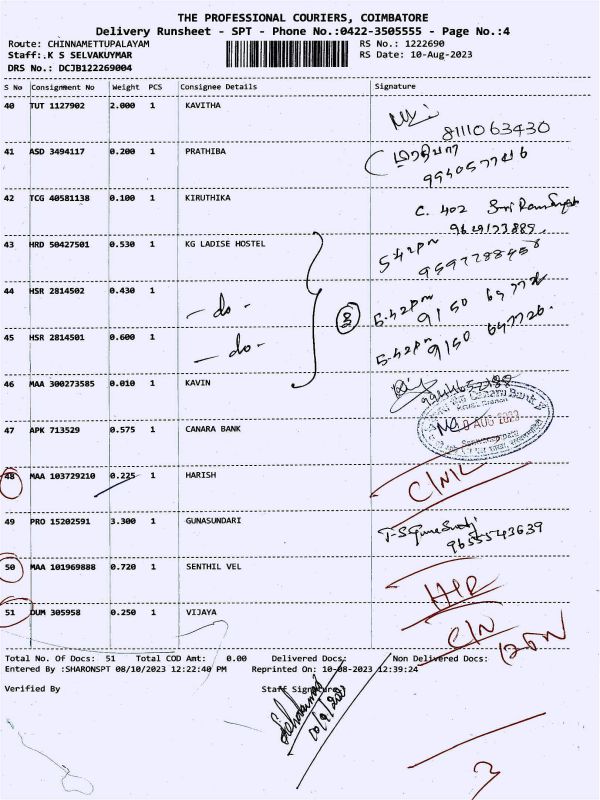 THE PROFESSIONAL COURIERS, COIMBATORE
Delivery Runsheet - SPT - Phone No.:0422-3505555 - Page No.:4
Route: CHINNAMETTUPALAYAM RS No.: 1222690
Staff:.K S SELVAKUYMAR RS Date: 10-Aug-2023
DRS No.: DCJB122269004
S No Consignment No Weight PCS Consignee Details Signature
40 TUT 1127902 2.000 1 KAVITHA
8111063430
41 ASD 3494117 0.200 1 PRATHIBA
42 TCG 40581138 0.100 1 KIRUTHIKA
C. 402
43 HRD 50427501 0.530 1 KG LADISE HOSTEL
5:42pm
44 HSR 2814502 0.430 1 - do -
5.42pm 9150
45 HSR 2814501 0.600 1 - do -
5.42pm 9150
46 MAA 300273585 0.010 1 KAVIN
47 APK 713529 0.575 1 CANARA BANK
Canara Bank
AUG 2023
48 MAA 103729210 0.225 1 HARISH
49 PRO 15202591 3.300 1 GUNASUNDARI
9655543639
50 MAA 101969888 0.720 1 SENTHIL VEL
51 DUM 305958 0.250 1 VIJAYA
C/N
Total No. Of Docs: 51 Total COD Amt: 0.00 Delivered Docs: Non Delivered Docs:
Entered By :SHARONSPT 08/10/2023 12:22:40 PM Reprinted On: 10-08-2023 12:39:24
Verified By Staff Signature
3